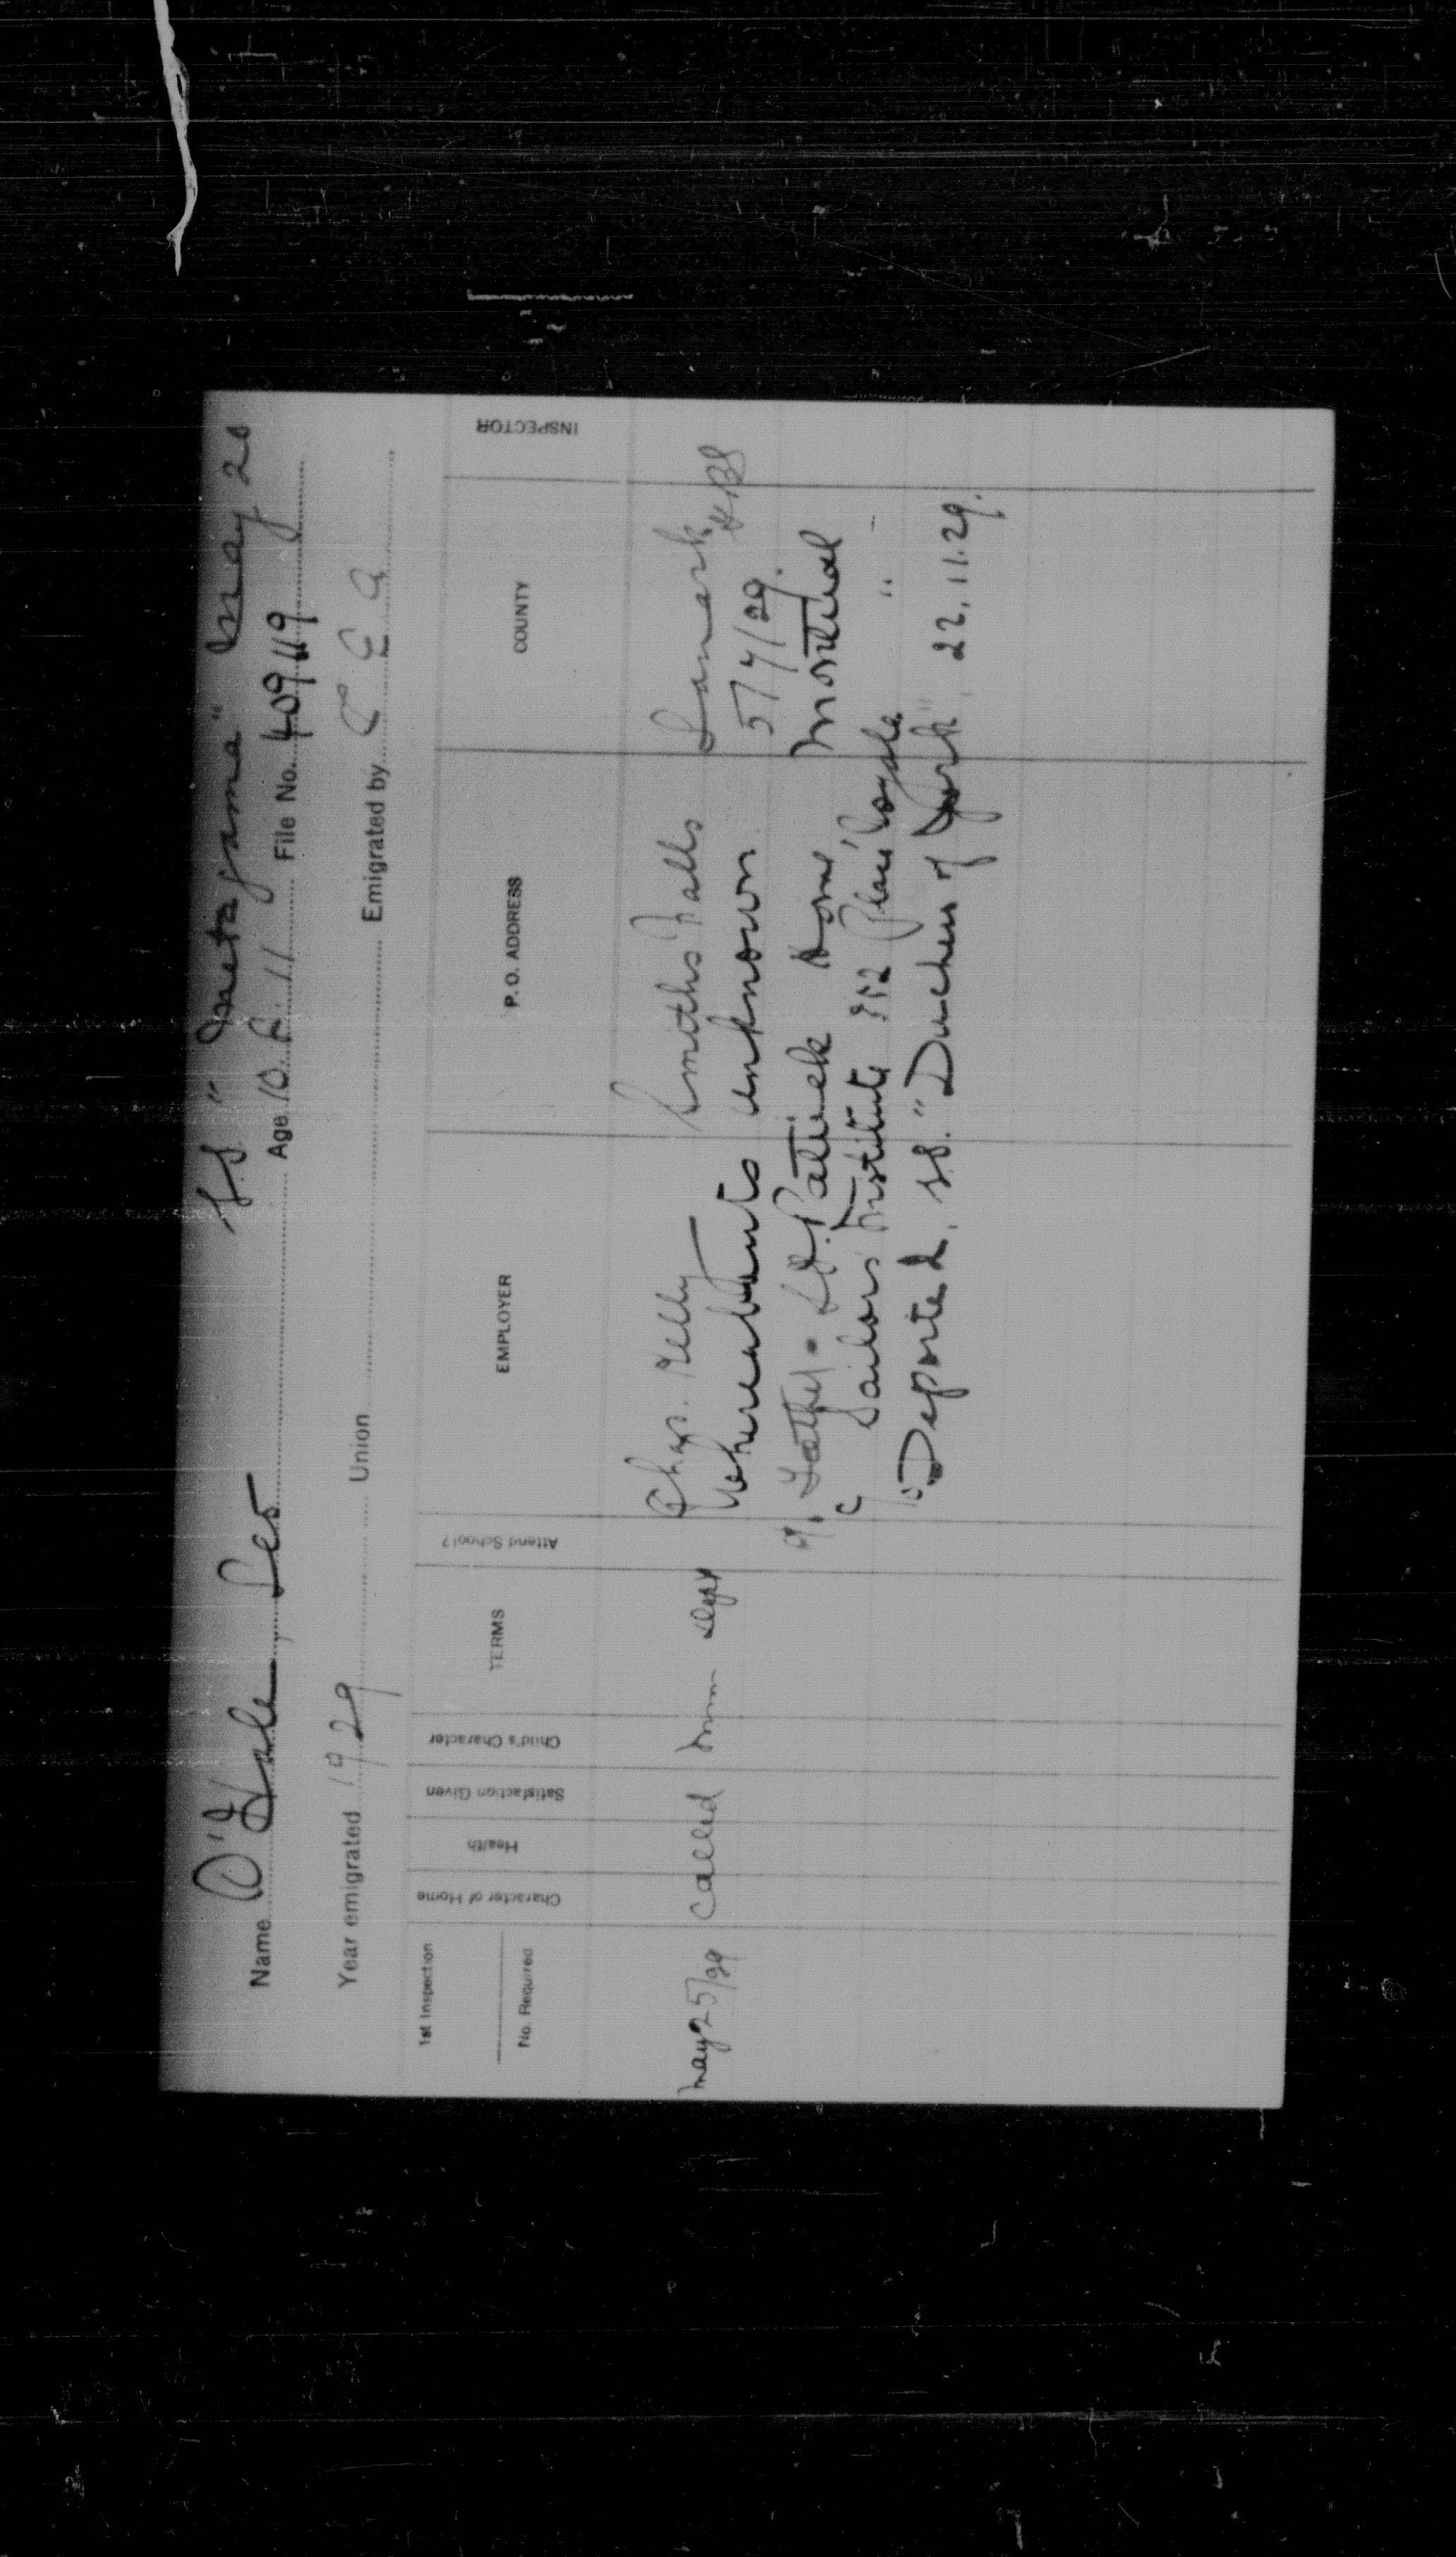 S.S. "Metagama" May 20
Name O'Hale, Leo Age 10. A. 11 File No. 409119
Year emigrated 1929 Union Emigrated by C E A
1st Inspection
No. Required
Character of Home
Health
Satisfaction Given
Child's Character
TERMS
Attend School?
EMPLOYER
P. O. ADDRESS
COUNTY
INSPECTOR
May 25/29 Called Chas. Kelly Smiths Falls Lanark
Whereabouts unknown 5/7/29.
Father St. Patrick Home Montreal
Sailors Institute Place Royale "
Deported, SS. "Duchess of York" 22.11.29.